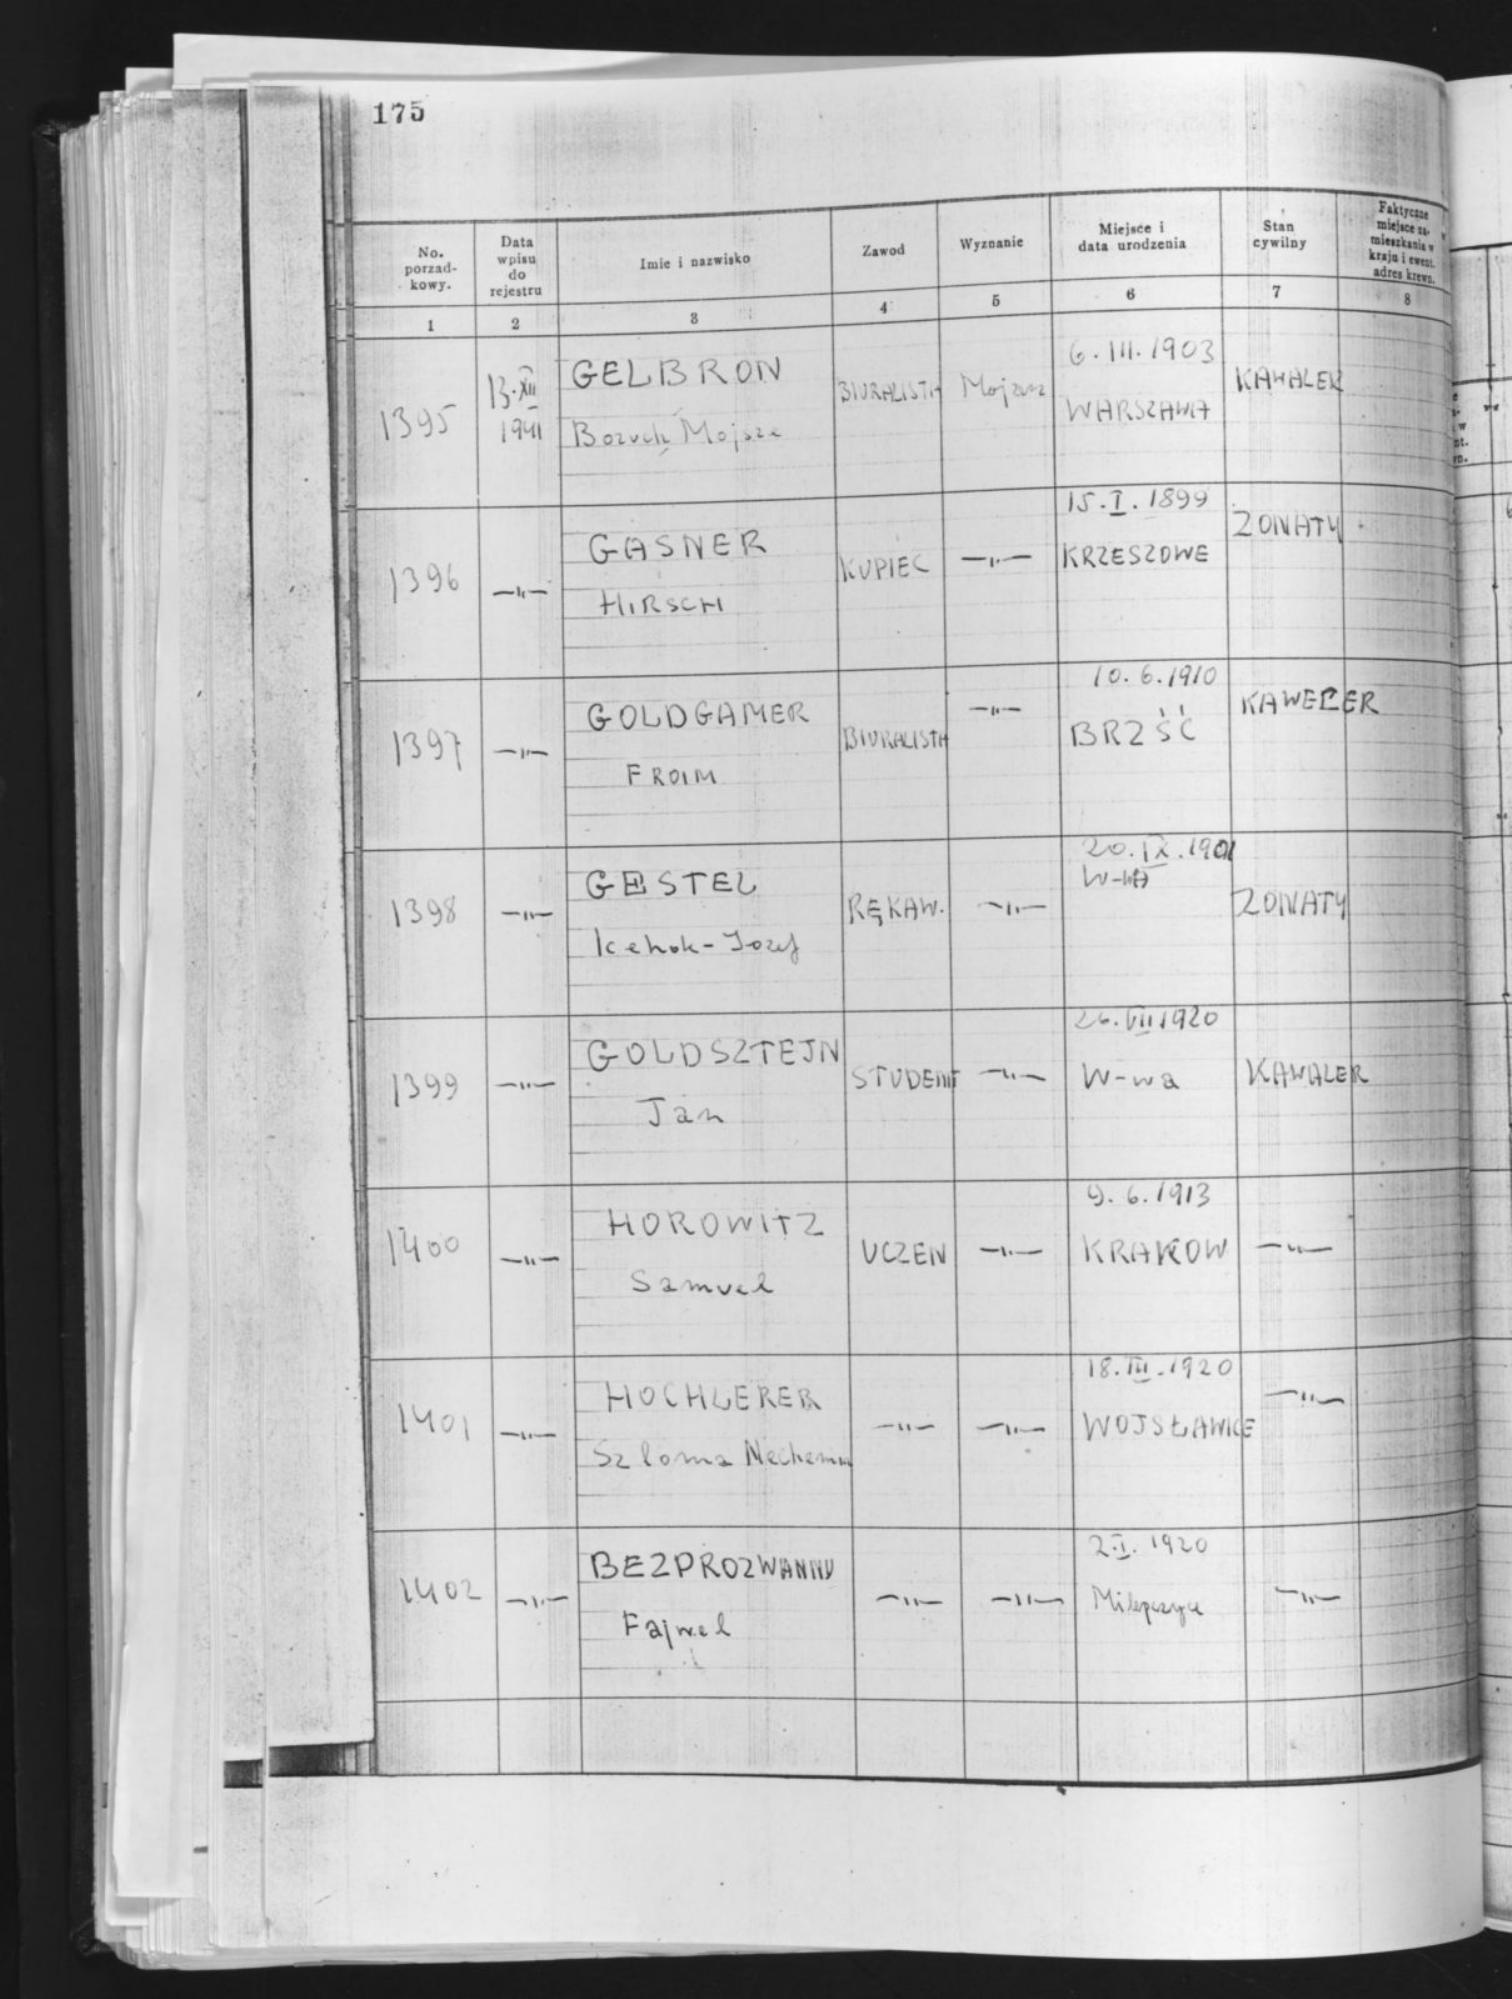 175
No. porzad- kowy.
Data wpisu do rejestru
Imie i nazwisko
Zawod
Wyznanie
Miejsce i data urodzenia
Stan cywilny
Faktyczne miejsce za- mieszkania w kraju i ewent. adres krewn.
1 2 3 4 5 6 7 8
1395 13.XII 1941 GELBRON BIURALISTA Mojzesz 6.III.1903 KAWALER
Boruch Mojsze WARSZAWA
1396 —"— GASNER KUPIEC —"— 15.I.1899 ZONATY
HIRSCH KRZESZOWE
1397 —"— GOLDGAMER BIURALISTA —"— 10.6.1910 KAWELER
FROIM BRZŚĆ
1398 —"— GESTEL RĘKAW. —"— 20.IX.1901 ZONATY
Icchok-Jozef W-WA
1399 —"— GOLDSZTEJN STUDENT —"— 26.VII 1920 KAWALER
Jan W-wa
1400 —"— HOROWITZ UCZEN —"— 9.6.1913 —"—
Samuel KRAKOW
1401 —"— HOCHLERER —"— —"— 18.III.1920 —"—
Szloma WOJSŁAWICE
1402 —"— BEZPROZWANNY —"— —"— 2.I.1920 —"—
Fajwel